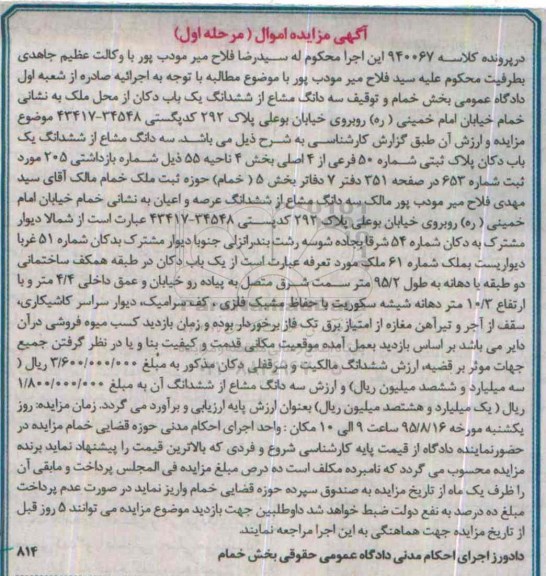 آگهی مزایده اموال ( مرحله اول)
درپرونده کلاسه ۹۴۰۰۶۷ این اجرا محکوم له سیدرضا فلاح میر مودب پور با وکالت عظیم جاهدی
بطرفیت محکوم علیه سید فلاح میر مودب پور با موضوع مطالبه با توجه به اجرائیه صادره از شعبه اول
دادگاه عمومی بخش خمام و توقیف سه دانگ مشاع از ششدانگ یک باب دکان از محل ملک به نشانی
خمام خیابان امام خمینی ( ره) روبروی خیابان بوعلی پلاک ۲۹۲ کدپستی ۳۴۵۴۸-۴۳۴۱۷ موضوع
مزایده و ارزش آن طبق گزارش کارشناسی به شرح ذیل می باشد. سه دانگ مشاع از ششدانگ یک
باب دکان پلاک ثبتی شماره ۵۰ فرعی از ۴ اصلی بخش ۴ ناحیه ۵۵ ذیل شماره بازداشتی ۲۰۵ مورد
ثبت شماره ۶۵۳ در صفحه ۳۵۱ دفتر ۷ دفاتر بخش ۵ ( خمام) حوزه ثبت ملک خمام مالک آقای سید
مهدی فلاح میر مودب پور مالک سه دانگ مشاع از ششدانگ عرصه و اعیان به نشانی خمام خیابان امام
خمینی ( ره) روبروی خیابان بوعلی پلاک ۲۹۲ کدپستی ۳۴۵۴۸-۴۳۴۱۷ عبارت است از شمالا دیوار
مشترک به دکان شماره ۵۴ شرقا بجاده شوسه رشت بندرانزلی جنوبا دیوار مشترک بدکان شماره ۵۱ غربا
دیواریست بملک شماره ۶۱ ملک مورد تعرفه عبارت است از یک باب دکان در طبقه همکف ساختمانی
دو طبقه با دهانه به طول ۹۵/۲ متر سمت شرق متصل به پیاده رو خیابان و عمق داخلی ۴/۴ متر و با
ارتفاع ۱۰/۲ متر دهانه شیشه سکوریت با حفاظ مشبک فلزی ، کف سرامیک، دیوار سراسر کاشیکاری،
سقف از آجر و تیرآهن مغازه از امتیاز برق تک فاز برخوردار بوده و زمان بازدید کسب میوه فروشی درآن
دایر می باشد بر اساس بازدید بعمل آمده موقعیت مکانی قدمت و کیفیت بنا و یا در نظر گرفتن جمیع
جهات موثر بر قضیه، ارزش ششدانگ مالکیت و سرقفلی دکان مذکور به مبلغ ۳/۶۰۰/۰۰۰/۰۰۰ ریال (
سه میلیارد و ششصد میلیون ریال) و ارزش سه دانگ مشاع از ششدانگ آن به مبلغ ۱/۸۰۰/۰۰۰/۰۰۰
ریال ( یک میلیارد و هشتصد میلیون ریال) بعنوان ارزش پایه ارزیابی و برآورد می گردد. زمان مزایده: روز
یکشنبه مورخه ۹۵/۸/۱۶ ساعت ۹ الی ۱۰ مکان : واحد اجرای احکام مدنی حوزه قضایی خمام مزایده در
حضورنماینده دادگاه از قیمت پایه کارشناسی شروع و فردی که بالاترین قیمت را پیشنهاد نماید برنده
مزایده محسوب می گردد که نامبرده مکلف است ده درص مبلغ مزایده فی المجلس پرداخت و مابقی آن
را ظرف یک ماه از تاریخ مزایده به صندوق سپرده حوزه قضایی خمام واریز نماید در صورت عدم پرداخت
مبلغ ده درصد به نفع دولت ضبط خواهد شد داوطلبین جهت بازدید موضوع مزایده می توانند ۵ روز قبل
از تاریخ مزایده جهت هماهنگی به این اجرا مراجعه نمایند.
دادورز اجرای احکام مدنی دادگاه عمومی حقوقی بخش خمام ۸۱۴